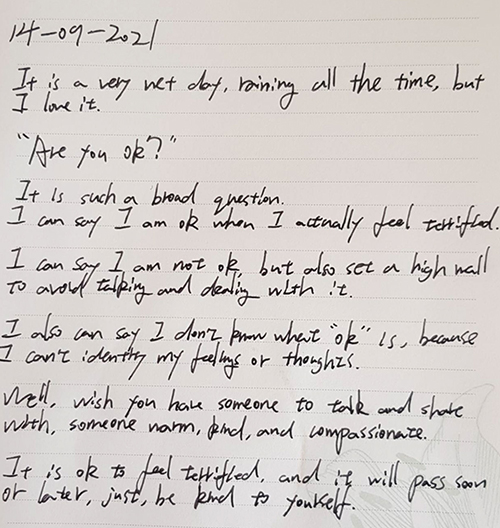 14-09-2021
It is a very wet day, raining all the time, but
I love it.
"Are you ok?"
It is such a broad question.
I can say I am ok when I actually feel terrified.
I can say I am not ok, but also set a high wall
to avoid talking and dealing with it.
I also can say I don't know what "ok" is, because
I can't identity my feelings or thoughts.
Well, wish you have someone to talk and share
with, someone warm, kind, and compassionate.
It is ok to feel terrified, and it will pass soon
or later, just, be kind to yourself.